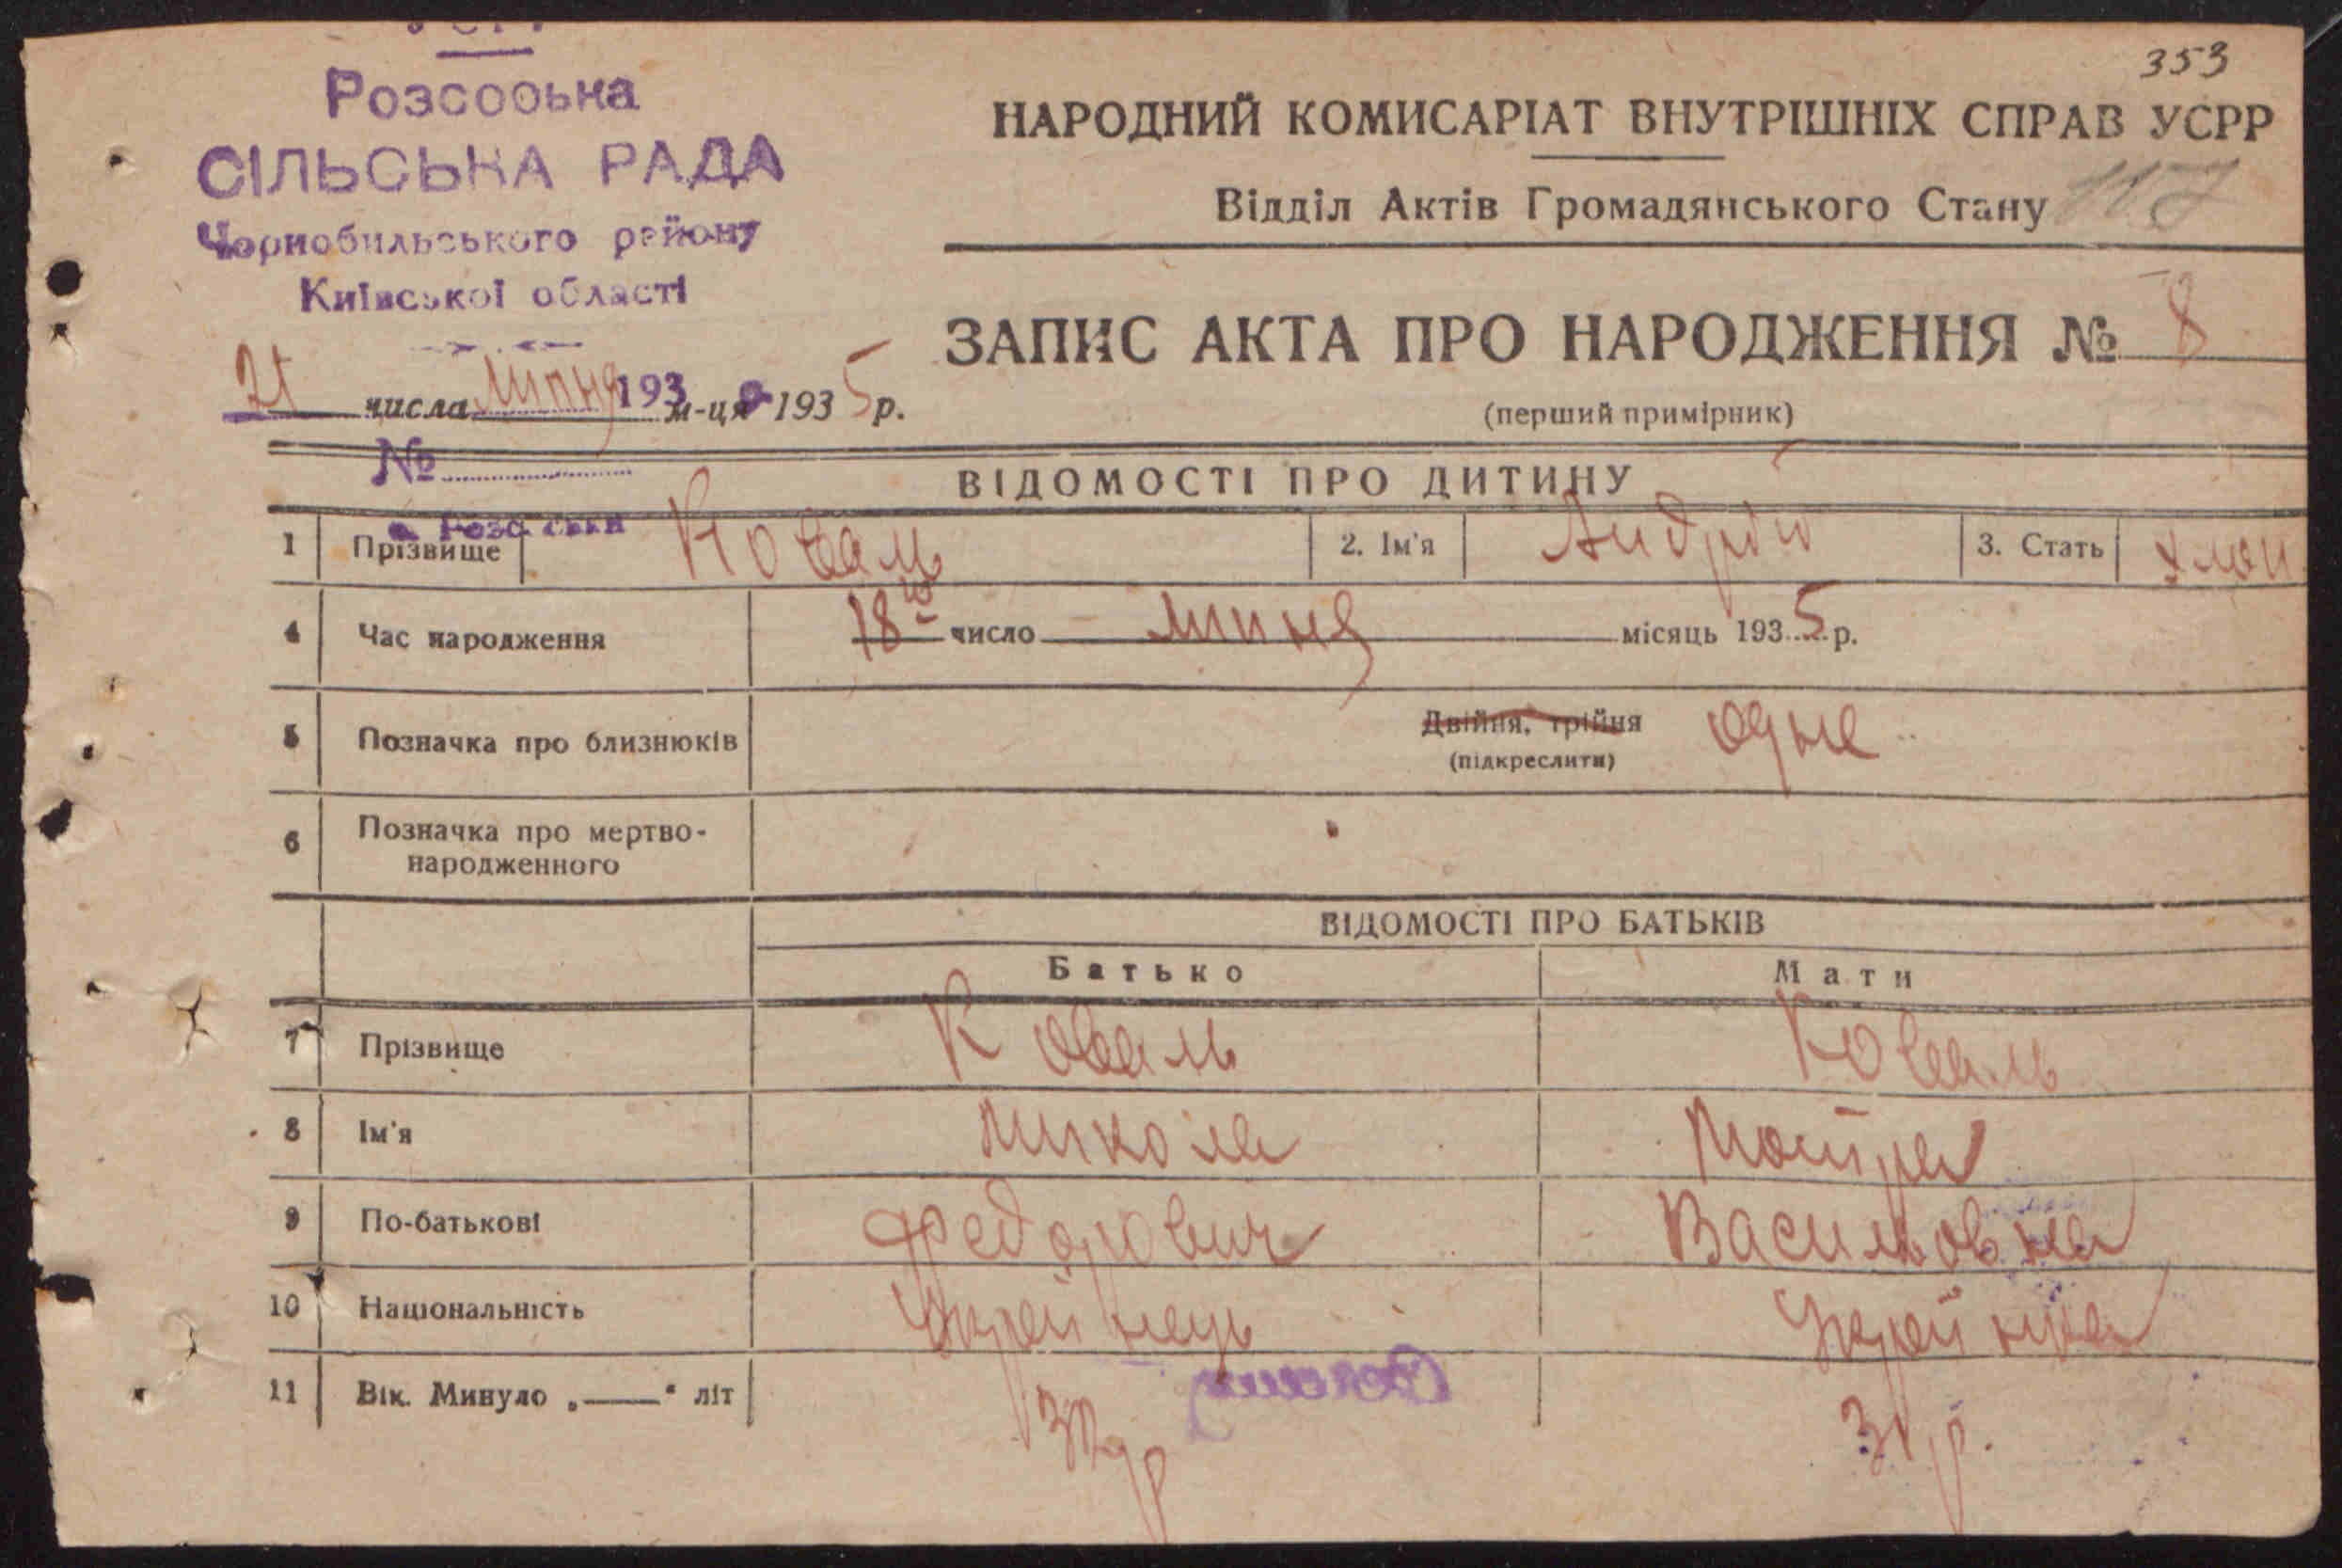 353
Розсоська
СІЛЬСЬКА РАДА
Чорнобильського району
Київської області
НАРОДНИЙ КОМИСАРІАТ ВНУТРІШНІХ СПРАВ УСРР
Відділ Актів Громадянського Стану 117
ЗАПИС АКТА ПРО НАРОДЖЕННЯ № 8
(перший примірник)
21 числа липня 193 м-ця 1935 р.
№
ВІДОМОСТІ ПРО ДИТИНУ
1 Прізвище Коваль 2. Ім'я Андрій 3. Стать хлоп
4 Час народження 18го число липня місяць 1935 р.
5 Позначка про близнюків Двійня, трійня одне
(підкреслити)
6 Позначка про мертво-
народженного
ВІДОМОСТІ ПРО БАТЬКІВ
Батько Мати
7 Прізвище Коваль Коваль
8 Ім'я Микола Мотря
9 По-батькові Федорович Васильовна
10 Національність Українець Українка
11 Вік. Минуло „—“ літ р. 31 р.